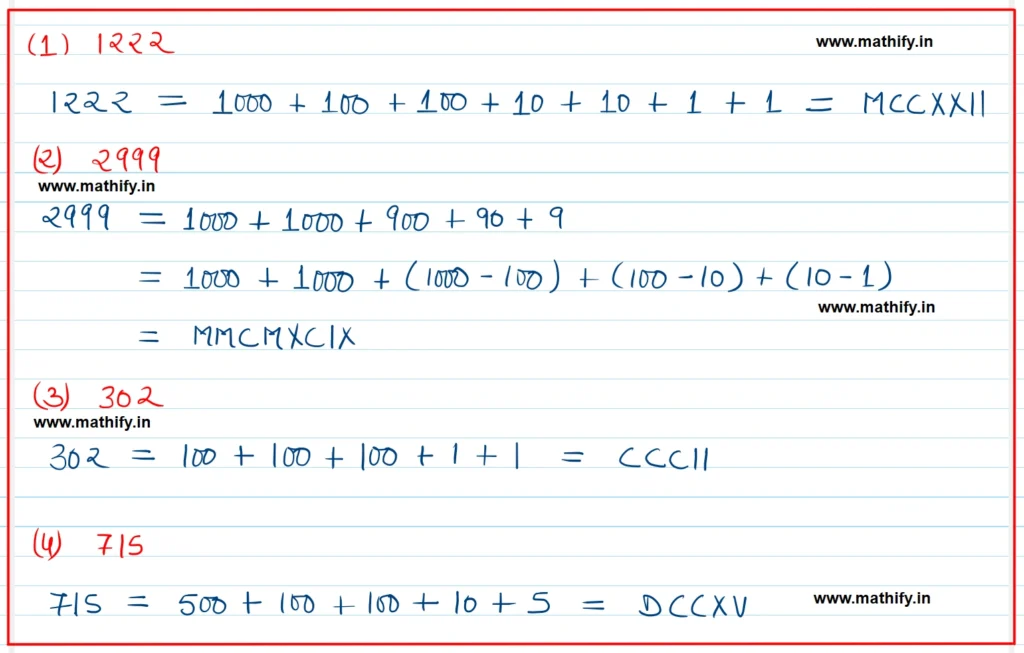 (1) 1222
www.mathify.in
1222 = 1000 + 100 + 100 + 10 + 10 + 1 + 1 = MCCXXII
(2) 2999
www.mathify.in
2999 = 1000 + 1000 + 900 + 90 + 9
= 1000 + 1000 + (1000 - 100) + (100 - 10) + (10 - 1)
www.mathify.in
= MMCMXCIX
(3) 302
www.mathify.in
302 = 100 + 100 + 100 + 1 + 1 = CCCII
(4) 715
715 = 500 + 100 + 100 + 10 + 5 = DCCXV
www.mathify.in